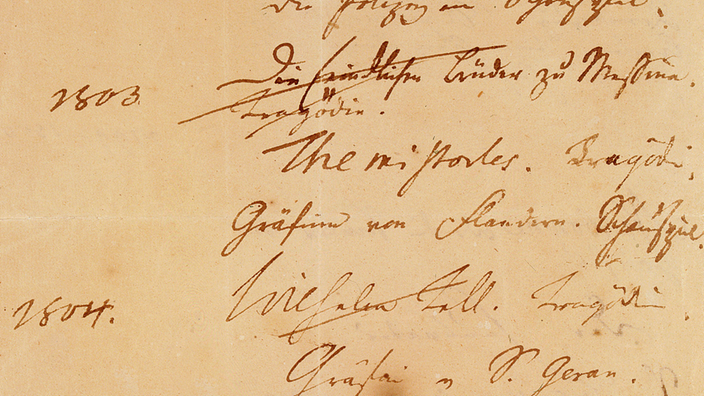 Die Polizey ein Schauspiel.
1803. Die feindlichen Brüder zu Messina.
Tragödie.
Themistocles. Tragödie.
Gräfinn von Flandern. Schauspiel.
1804. Wilhelm Tell. Tragödie.
Gräfin v S. Geran.